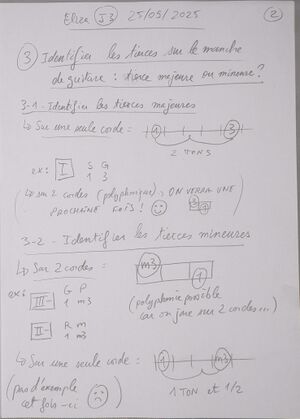 Eliza J3 25/05/2025 2
3 Identifier les tierces sur le manche
de guitare : tierce majeure ou mineure?
3-1- Identifier les tierces majeures
↳ Sur une seule corde = 1 3
2 TONS
ex: I S G
1 3
(↳ sur 2 cordes (polyphonique) = ON VERRA UNE
PROCHAINE FOIS! ☹ 3 1
3-2 - Identifier les tierces mineures
↳ Sur 2 cordes = m3 1
ex: III- G P
1 m3
(polyphonie possible
car on joue sur 2 cordes...)
II- R m
1 m3
↳ Sur une seule corde = 1 m3
1 TON et 1/2
(pas d'exemple
cet fois-ci ☹)